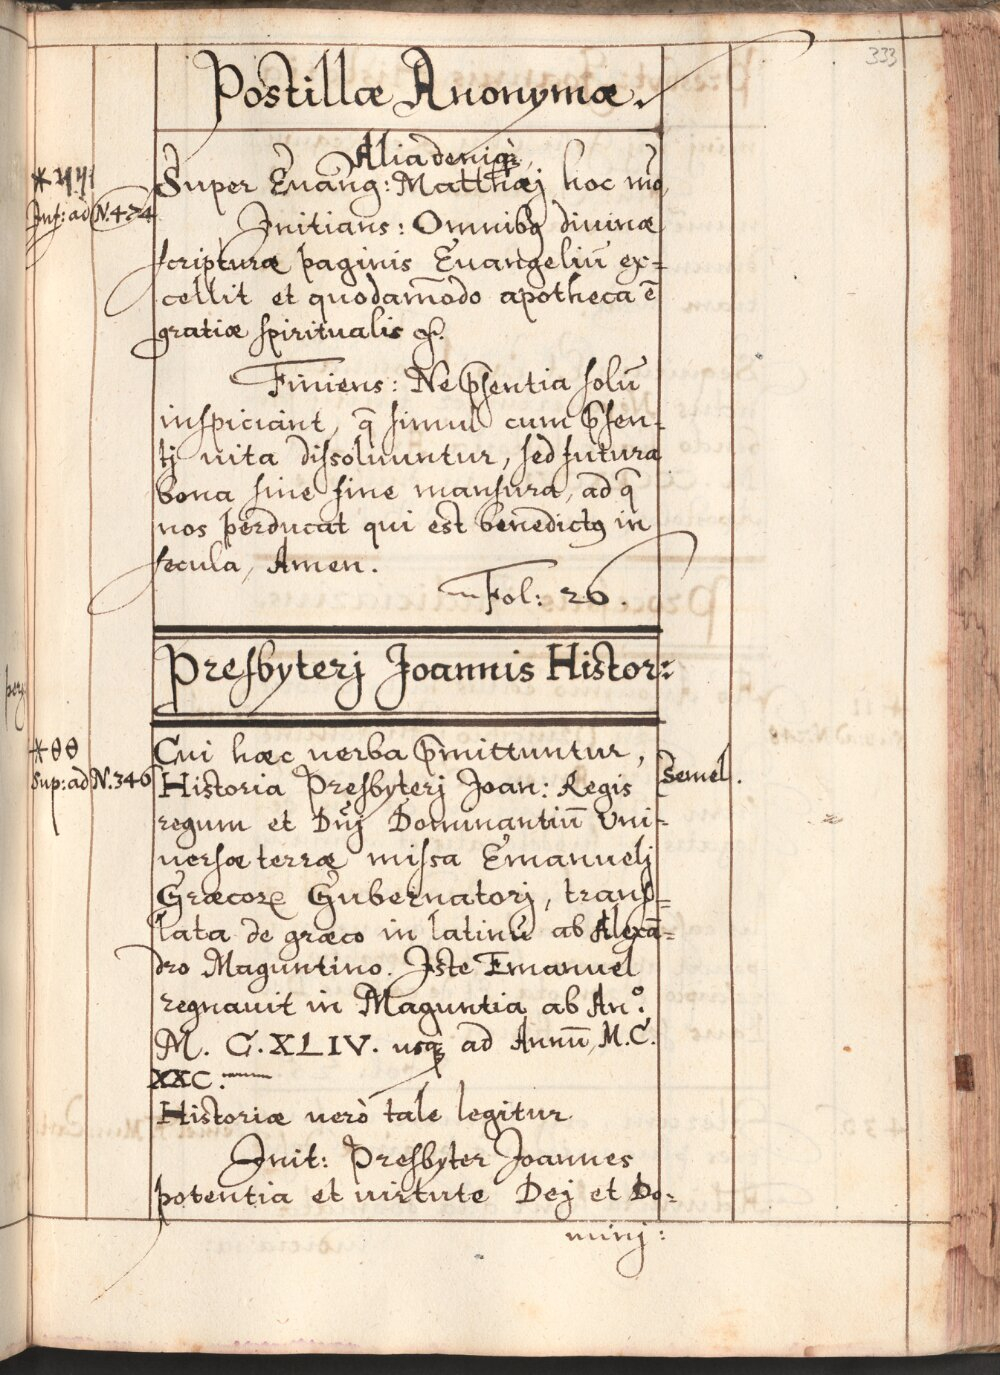 333
Postillæ Anonymæ.
Alia deniq₃,
Super Euāng: Matthæj hoc mō
Inf: ad N. 424
Initians: Omnibꝰ diuinæ
scripturæ paginis Euangeliū ex=
cellit et quodam̄odo apotheca ē
gratiæ spiritualis
Finiens: Ne p̄sentia solū
inspiciant, q̄ simul cum p̄sen-
tj uita dissoluuntur, sed futura
bona sine fine mansura, ad q̄
nos perducat qui est benedictꝰ in
secula, Amen.
Fol: 26.
Presbyterj Joannis Histor:
*θθ
Sup: ad N. 346
Cui hæc uerba p̄mittuntur,
Semel.
Historia Presbyterj Joan: Regis
regum et Dn̄j Dominantiū Uni-
uersæ terræ missa Emanuelj
Græcorꝝ Gubernatorj, trans=
lata de græco in latinū ab Alexā=
dro Maguntino. Iste Emanuel
regnauit in Maguntia ab Anº:
M. C. XLIV. usq₃ ad Annū M. C.
XXC.
Historiæ uerò tale legitur
Init: Presbyter Joannes
potentia et uirtute Dej et Do=
minj: